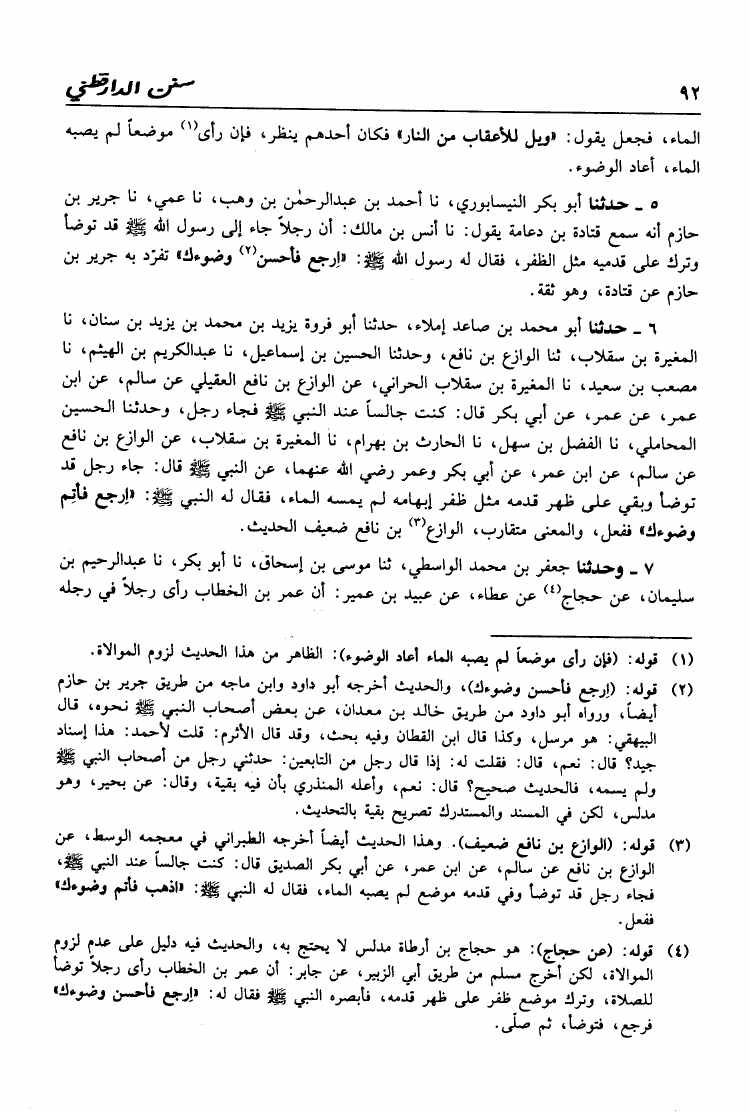 ٩٢
سنن الدارقطني
الماء، فجعل يقول: «ويل للأعقاب من النار» فكان أحدهم ينظر، فإن رأى(١) موضعاً لم يصبه
الماء، أعاد الوضوء.
٥ ـ حدثنا أبو بكر النيسابوري، نا أحمد بن عبدالرحمٰن بن وهب، نا عمي، نا جرير بن
حازم أنه سمع قتادة بن دعامة يقول: نا أنس بن مالك: أن رجلاً جاء إلى رسول الله ﷺ قد توضأ
وترك على قدميه مثل الظفر، فقال له رسول الله ﷺ: «إرجع فأحسن(٢) وضوءك» تفرّد به جرير بن
حازم عن قتادة، وهو ثقة.
٦ ـ حدثنا أبو محمد بن صاعد إملاء، حدثنا أبو فروة يزيد بن محمد بن يزيد بن سنان، نا
المغيرة بن سقلاب، ثنا الوازع بن نافع، وحدثنا الحسين بن إسماعيل، نا عبدالكريم بن الهيثم، نا
مصعب بن سعيد، نا المغيرة بن سقلاب الحراني، عن الوازع بن نافع العقيلي عن سالم، عن ابن
عمر، عن عمر، عن أبي بكر قال: كنت جالساً عند النبي ﷺ فجاء رجل، وحدثنا الحسين
المحاملي، نا الفضل بن سهل، نا الحارث بن بهرام، نا المغيرة بن سقلاب، عن الوازع بن نافع
عن سالم، عن ابن عمر، عن أبي بكر وعمر رضي الله عنهما، عن النبي ﷺ قال: جاء رجل قد
توضأ وبقي على ظهر قدمه مثل ظفر إبهامه لم يمسه الماء، فقال له النبي ﷺ: «إرجع فأتِم
وضوءك» ففعل، والمعنى متقارب، الوازع(٣) بن نافع ضعيف الحديث.
٧ ـ وحدثنا جعفر بن محمد الواسطي، ثنا موسى بن إسحاق، نا أبو بكر، نا عبدالرحيم بن
سليمان، عن حجاج(٤) عن عطاء، عن عبيد بن عمير: أن عمر بن الخطاب رأى رجلاً في رجله
(١) قوله: (فإن رأى موضعاً لم يصبه الماء أعاد الوضوء): الظاهر من هذا الحديث لزوم الموالاة.
(٢) قوله: (إرجع فأحسن وضوءك)، والحديث أخرجه أبو داود وابن ماجه من طريق جرير بن حازم
أيضاً، ورواه أبو داود من طريق خالد بن معدان، عن بعض أصحاب النبي ﷺ نحوه، قال
البيهقي: هو مرسل، وكذا قال ابن القطان وفيه بحث، وقد قال الأثرم: قلت لأحمد: هذا إسناد
جيد؟ قال: نعم، قال: فقلت له: إذا قال رجل من التابعين: حدثني رجل من أصحاب النبي ﷺ
ولم يسمه، فالحديث صحيح؟ قال: نعم، وأعله المنذري بأن فيه بقية، وقال: عن بحير، وهو
مدلس، لكن في المسند والمستدرك تصريح بقية بالتحديث.
(٣) قوله: (الوازع بن نافع ضعيف). وهذا الحديث أيضاً أخرجه الطبراني في معجمه الوسط، عن
الوازع بن نافع عن سالم، عن ابن عمر، عن أبي بكر الصديق قال: كنت جالساً عند النبي ﷺ،
فجاء رجل قد توضأ وفي قدمه موضع لم يصبه الماء، فقال له النبي ﷺ: «اذهب فأتم وضوءك»
ففعل.
(٤) قوله: (عن حجاج): هو حجاج بن أرطاة مدلس لا يحتج به، والحديث فيه دليل على عدم لزوم
الموالاة، لكن أخرج مسلم من طريق أبي الزبير، عن جابر: أن عمر بن الخطاب رأى رجلاً توضأ
للصلاة، وترك موضع ظفر على ظهر قدمه، فأبصره النبي ﷺ فقال له: «إرجع فأحسن وضوءك»
فرجع، فتوضأ، ثم صلّى.